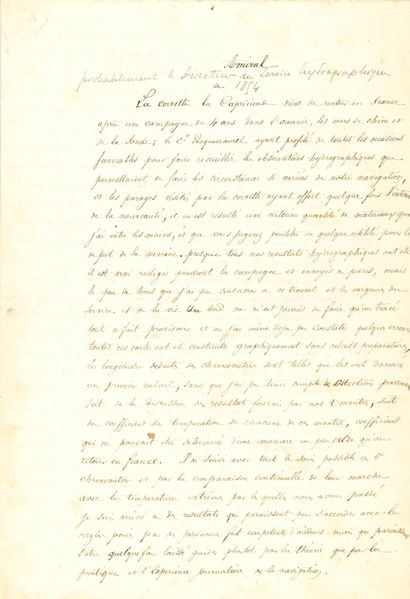 Amiral
probablement le Directeur du Service hydrographique
en 1854
La corvette la Capricieuse vient de rentrer en France
après une campagne de 4 ans dans l'océanie, les mers de chine et
de la Sonde; le Ct Roquemaurel ayant profité de toutes les occasions
favorables pour faire recueillir les observations hydrographiques que
permettaient de faire les circonstances si variées de notre navigation,
et les parages visités par la corvette ayant offert quelque fois l'intérêt
de la nouveauté, il en est resulté une certaine quantité de materiaux que
j'ai entre les mains, et que vous jugerez peutêtre de quelque utilité pour le
depot de la marine. presque tous nos resultats hydrographiques ont été
il est vrai redigés pendant la campagne et envoyés a paris, mais
le peu de tems que j'ai pu consacrer a ce travail et les exigences du
service et de la vie du bord ne m'ont permis de faire qu'un tracé
tout a fait provisoire et ou j'ai même deja pu constater quelques erreurs
toutes ces cartes ont été construites graphiquement sans calculs preparatoires,
les longitudes deduites des chronometres sont telles que les ont données
un premier calcul, sans que j'ai pu tenir compte de
soit de la discussion des resultats fournis par nos 5 montres, soit
du coefficient de temperature de chacune de ces montres, coefficient
qui ne pouvait etre determiné d'une maniere un peu exacte qu'au
retour en france. J'ai suivi avec tout le soin possible ces 5
chronometres et par la comparaison continuelle de leur marche
avec les temperatures extrêmes par lesquelles nous avons passé
je suis arrivé a des resultats qui paraissent peu s'accorder avec les
regles posées par des personnes fort competentes d'ailleurs mais qui paraissent
s'etre quelque fois laissé guider plutot par la théorie que par la
pratique et l'experience journaliere de la navigation.